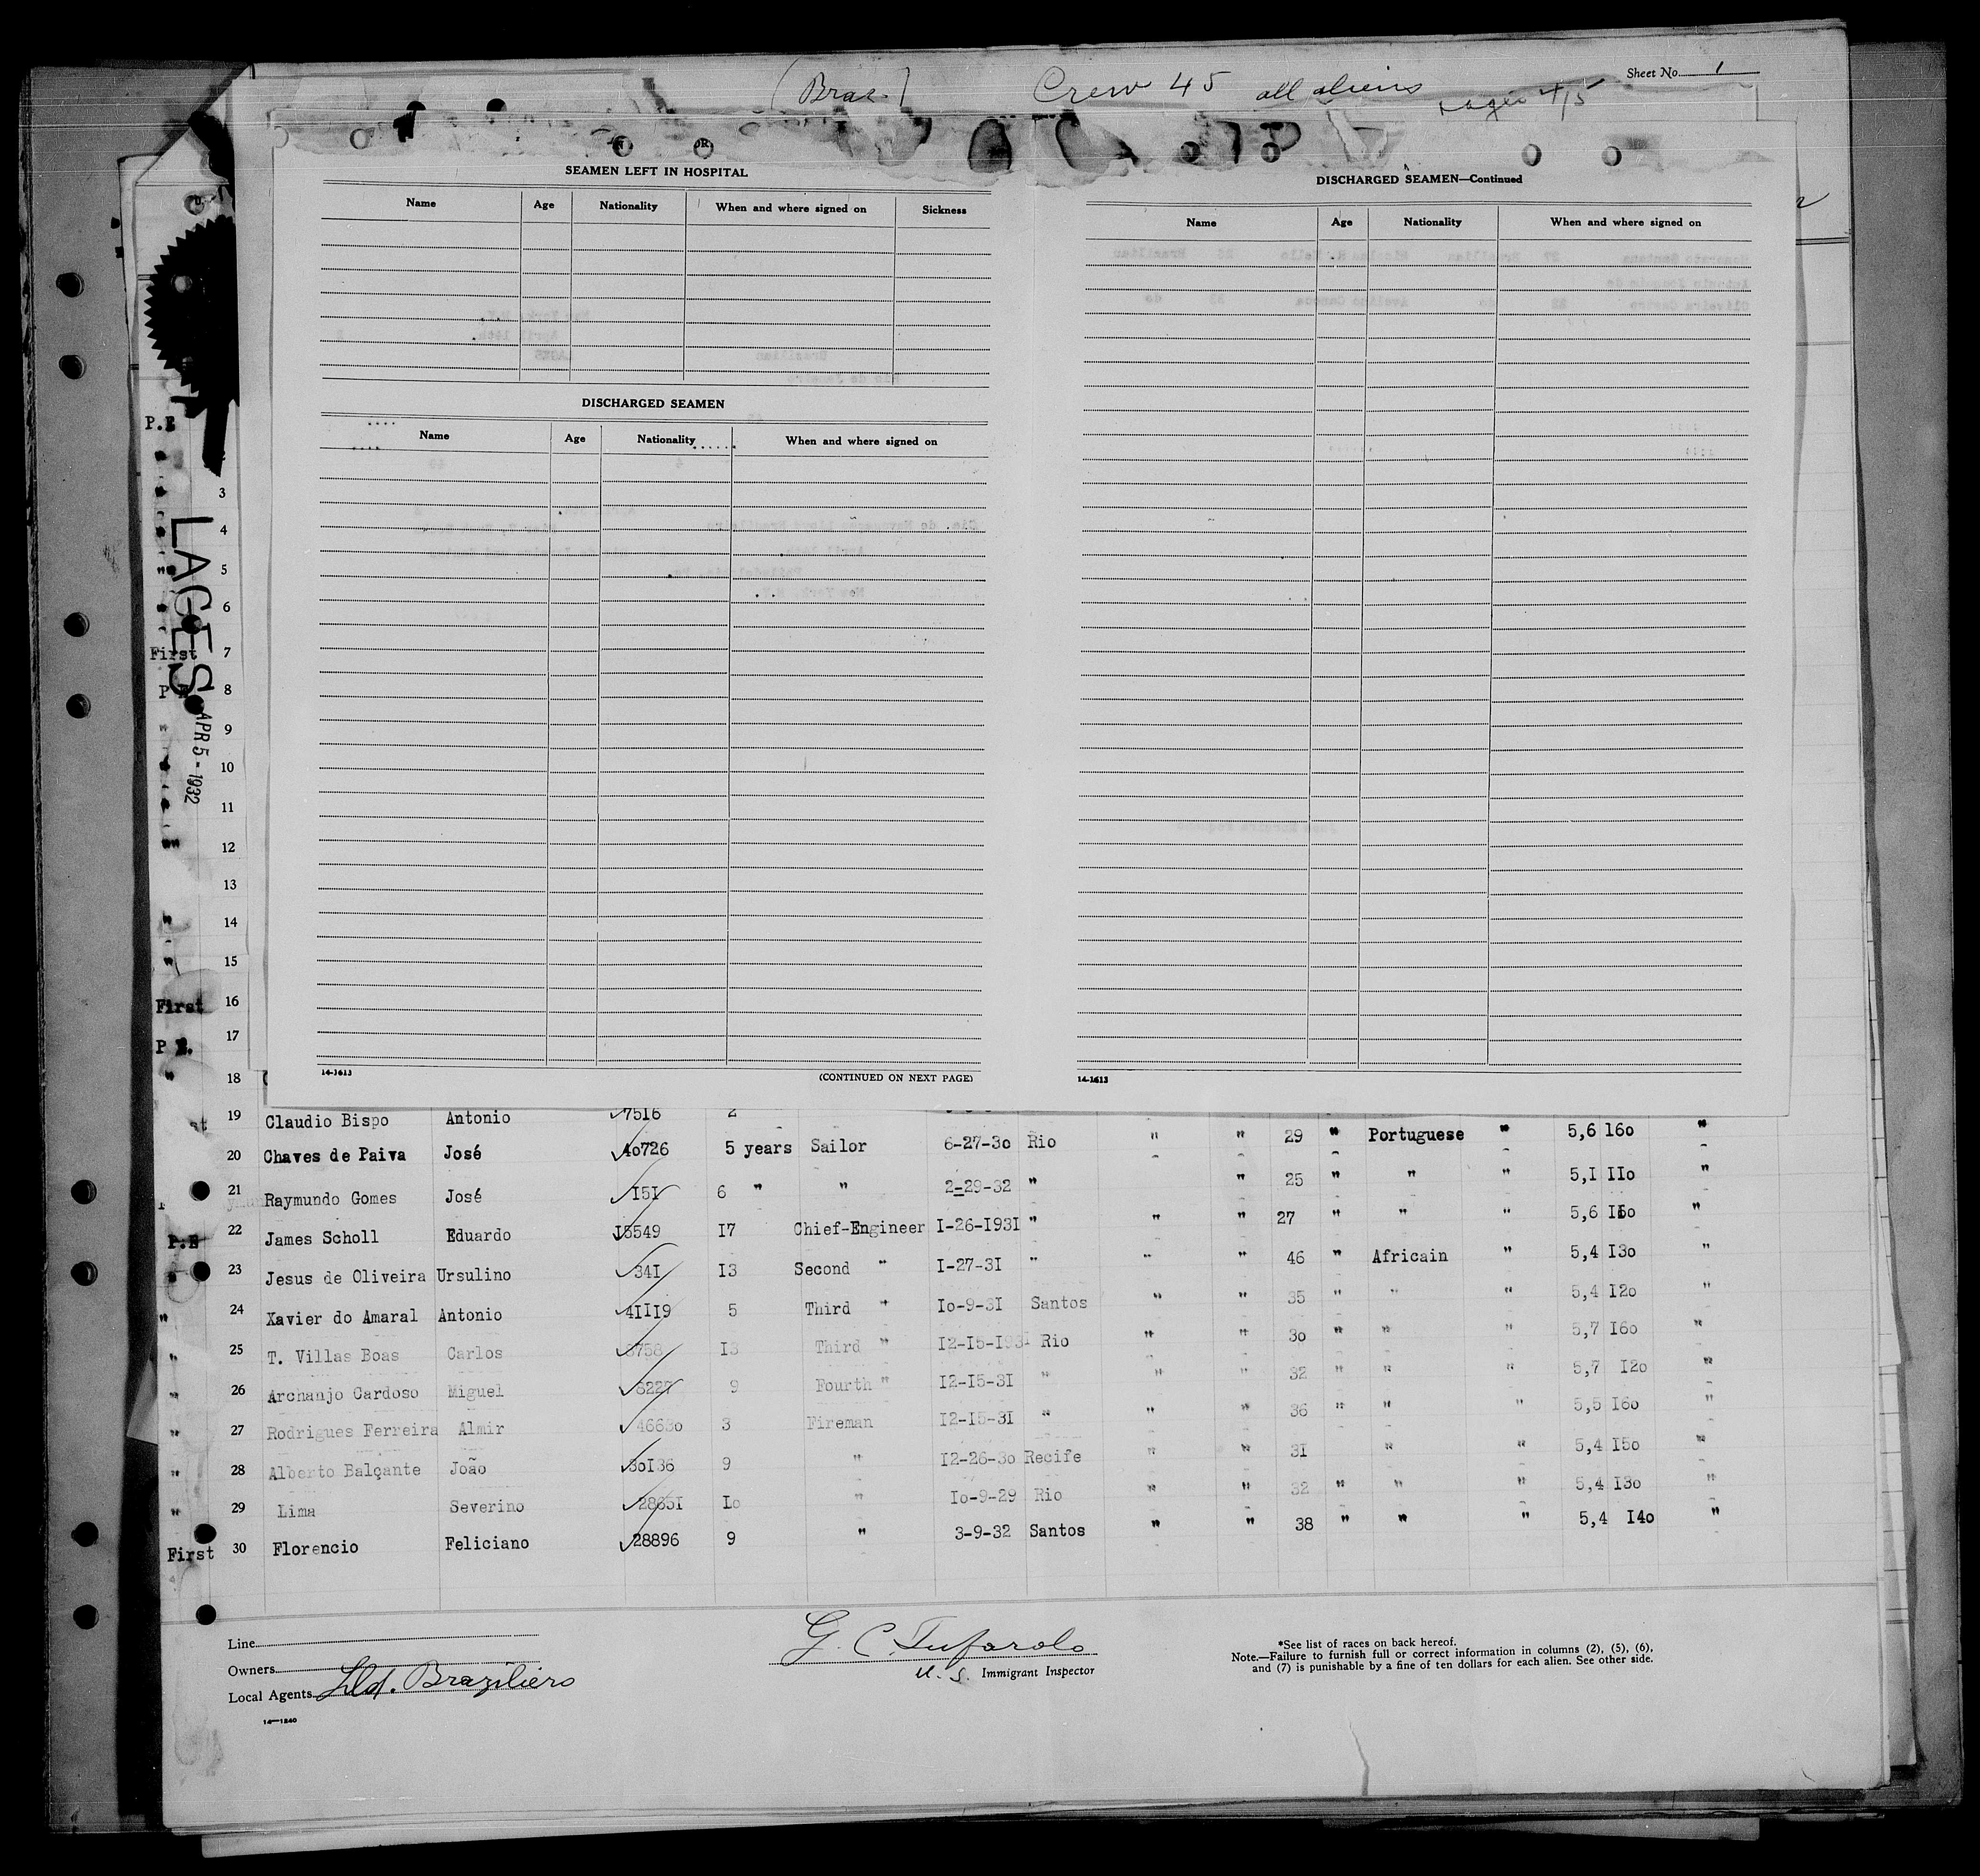 (Braz.) Crew 45 all aliens
Sheet No. 1
SEAMEN LEFT IN HOSPITAL
Name Age Nationality When and where signed on Sickness
DISCHARGED SEAMEN
Name Age Nationality When and where signed on
14-1613
(CONTINUED ON NEXT PAGE)
DISCHARGED SEAMEN—Continued
Name Age Nationality When and where signed on
14-1613
LAGES
APR 5 - 1932
P.E
3
4
5
6
First 7
P 8
9
10
11
12
13
14
15
First 16
P E. 17
18
19 Claudio Bispo Antonio 75I6 2 " " 29 " Portuguese " 5,6 I6o "
20 Chaves de Paiva José 4o726 5 years Sailor 6-27-3o Rio " 25 " " " 5,I IIo "
21 Raymundo Gomes José I5I 6 " " 2-29-32 " " " 27 " " " 5,6 "
P.E 22 James Scholl Eduardo I5549 I7 Chief-Engineer I-26-I93I " " " 46 " Africain " 5,4 I3o "
23 Jesus de Oliveira Ursulino 34I I3 Second " I-27-3I " " " 35 " " " 5,4 I2o "
" 24 Xavier do Amaral Antonio 4III9 5 Third " Io-9-3I Santos " " 3o " " " 5,7 I6o "
" 25 T. Villas Boas Carlos I3 Third " I2-I5-I93I Rio " " 32 " " " 5,7 I2o "
" 26 Archanjo Cardoso Miguel 9 Fourth " I2-I5-3I " " " 36 " " " 5,5 I6o "
" 27 Rodrigues Ferreira Almir 4663o 3 Fireman I2-I5-3I " " " 3I " " 5,4 I5o "
" 28 Alberto Balçante João 3oI36 9 " I2-26-3o Recife " " 32 " " " 5,4 I3o "
" 29 Lima Severino Io " Io-9-29 Rio " " 38 " " " 5,4 I4o "
First 30 Florencio Feliciano 28896 9 " 3-9-32 Santos
Line
Owners
Local Agents Lld. Braziliero
14—1240
G. C. Tufarolo
U. S. Immigrant Inspector
*See list of races on back hereof.
Note.—Failure to furnish full or correct information in columns (2), (5), (6),
and (7) is punishable by a fine of ten dollars for each alien. See other side.